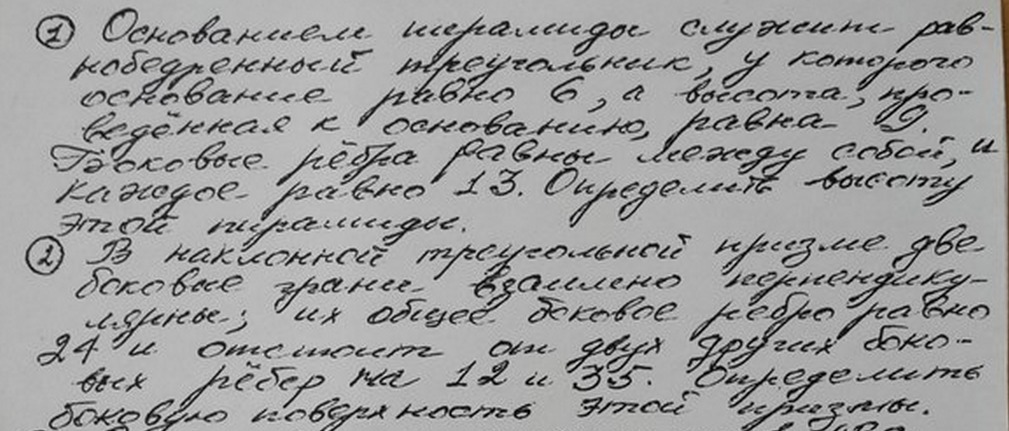 ① Основанием пирамиды служит рав-
нобедренный треугольник, у которого
основание равно 6, а высота, про-
ведённая к основанию, равна 9.
Боковые рёбра равны между собой, и
каждое равно 13. Определить высоту
этой пирамиды.
② В наклонной треугольной призме две
боковые грани взаимно перпендику-
лярны; их общее боковое ребро равно
24 и отстоит от двух других боко-
вых рёбер на 12 и 35. Определить
боковую поверхность этой призмы.